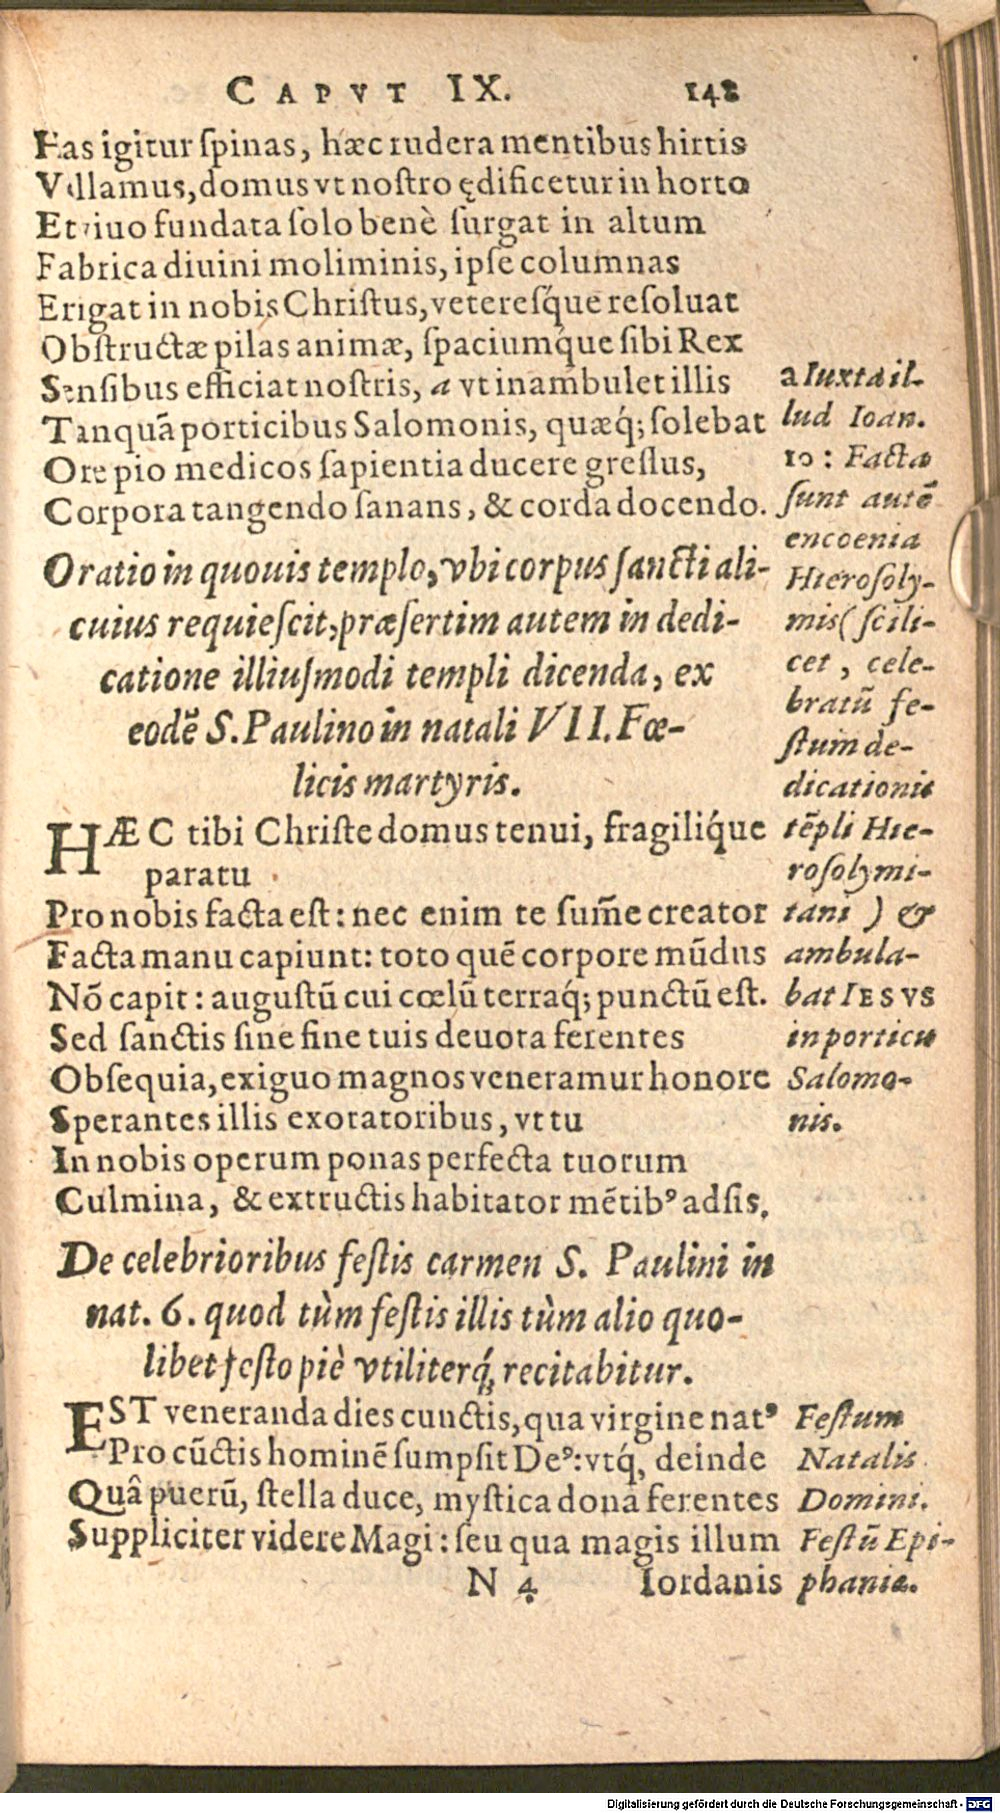 CAPVT IX. 148
Has igitur ſpinas, hæc rudera mentibus hirtis
Vellamus, domus vt noſtro ędificetur in horto
Et viuo fundata ſolo benè ſurgat in altum
Fabrica diuini moliminis, ipſe columnas
Erigat in nobis Chriſtus, vetereſq́ue reſoluat
Obſtructæ pilas animæ, ſpaciumq́ue ſibi Rex
Senſibus efficiat noſtris, a vt inambulet illis
Tanquā porticibus Salomonis, quæq́; ſolebat
Ore pio medicos ſapientia ducere greſſus,
Corpora tangendo ſanans, & corda docendo.
Oratio in quouis templo, vbi corpus ſancti ali-
cuius requieſcit, præſertim autem in dedi-
catione illiuſmodi templi dicenda, ex
eodē S. Paulino in natali VII. Fœ-
licis martyris.
HÆC tibi Chriſte domus tenui, fragiliq́ue
paratu
Pro nobis facta eſt: nec enim te sum̄e creator
Facta manu capiunt: toto quē corpore mūdus
Nō capit: auguſtū cui cœlū terraq́; punctū eſt.
Sed ſanctis ſine fine tuis deuota ferentes
Obſequia, exiguo magnos veneramur honore
Sperantes illis exoratoribus, vt tu
In nobis operum ponas perfecta tuorum
Culmina, & extructis habitator mētibꝰ adſis.
De celebrioribus feſtis carmen S. Paulini in
nat. 6. quod tùm feſtis illis tùm alio quo-
libet feſto piè vtiliterq́; recitabitur.
EST veneranda dies cunctis, qua virgine natꝰ
Pro cūctis hominē ſumpſit Deꝰ: vtq́, deinde
Quâ puerū, ſtella duce, myſtica dona ferentes
Suppliciter videre Magi: ſeu qua magis illum
N 4 Iordanis
a Iuxta il-
lud Ioan.
10: Facta
ſunt autē
encoenia
Hieroſoly-
mis (ſcili-
cet, cele-
bratū fe-
ſtum de-
dicationis
tēpli Hie-
roſolymi-
tani) &
ambula-
bat IESVS
in porticu
Salomo-
nis.
Feſtum
Natalis
Domini.
Feſtū Epi-
phaniæ.
Digitalisierung gefördert durch die Deutsche Forschungsgemeinschaft - DFG